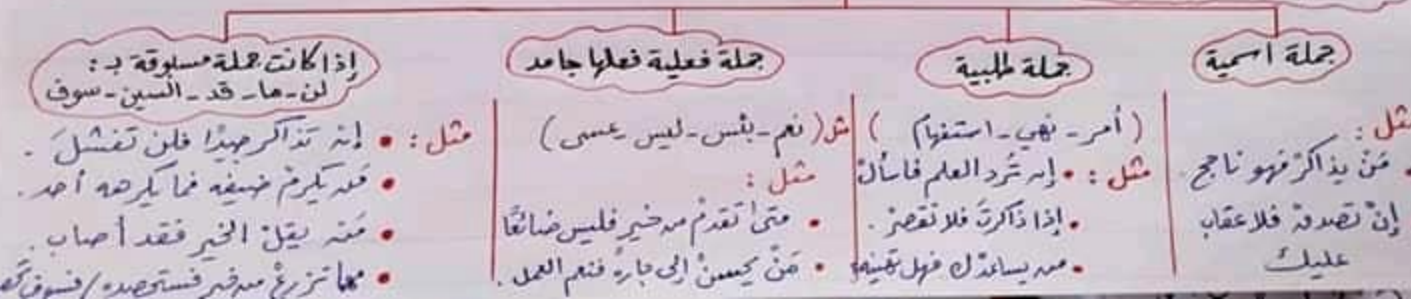 جملة اسمية
مثل :
• مَنْ يذاكرْ فهو ناجح
إنْ تصدقْ فلا عقاب
عليك
جملة طلبية
( أمر - نهي - استفهام )
مثل : • إن تُرد العلم فاسألْ
• إذا ذاكرتَ فلا تقصر .
• من يساعدْك فهل
جملة فعلية فعلها جامد
مثل ( نعم - بئس - ليس - عسى )
مثل :
• متى تقدمْ من خير فليس ضائعًا
• مَنْ يحسنْ إلى جارهِ فنعم العمل .
إذا كانت جملة مسبوقة بـ :
لن - ما - قد - السين - سوف
مثل : • إن تذاكر جيدًا فلن تفشلَ .
• من يكرمْ ضيفه فما يكرهه أحد .
• مَن يقلْ الخير فقد أصاب .
• مهما تزرعْ من خير فستحصده / فسوف